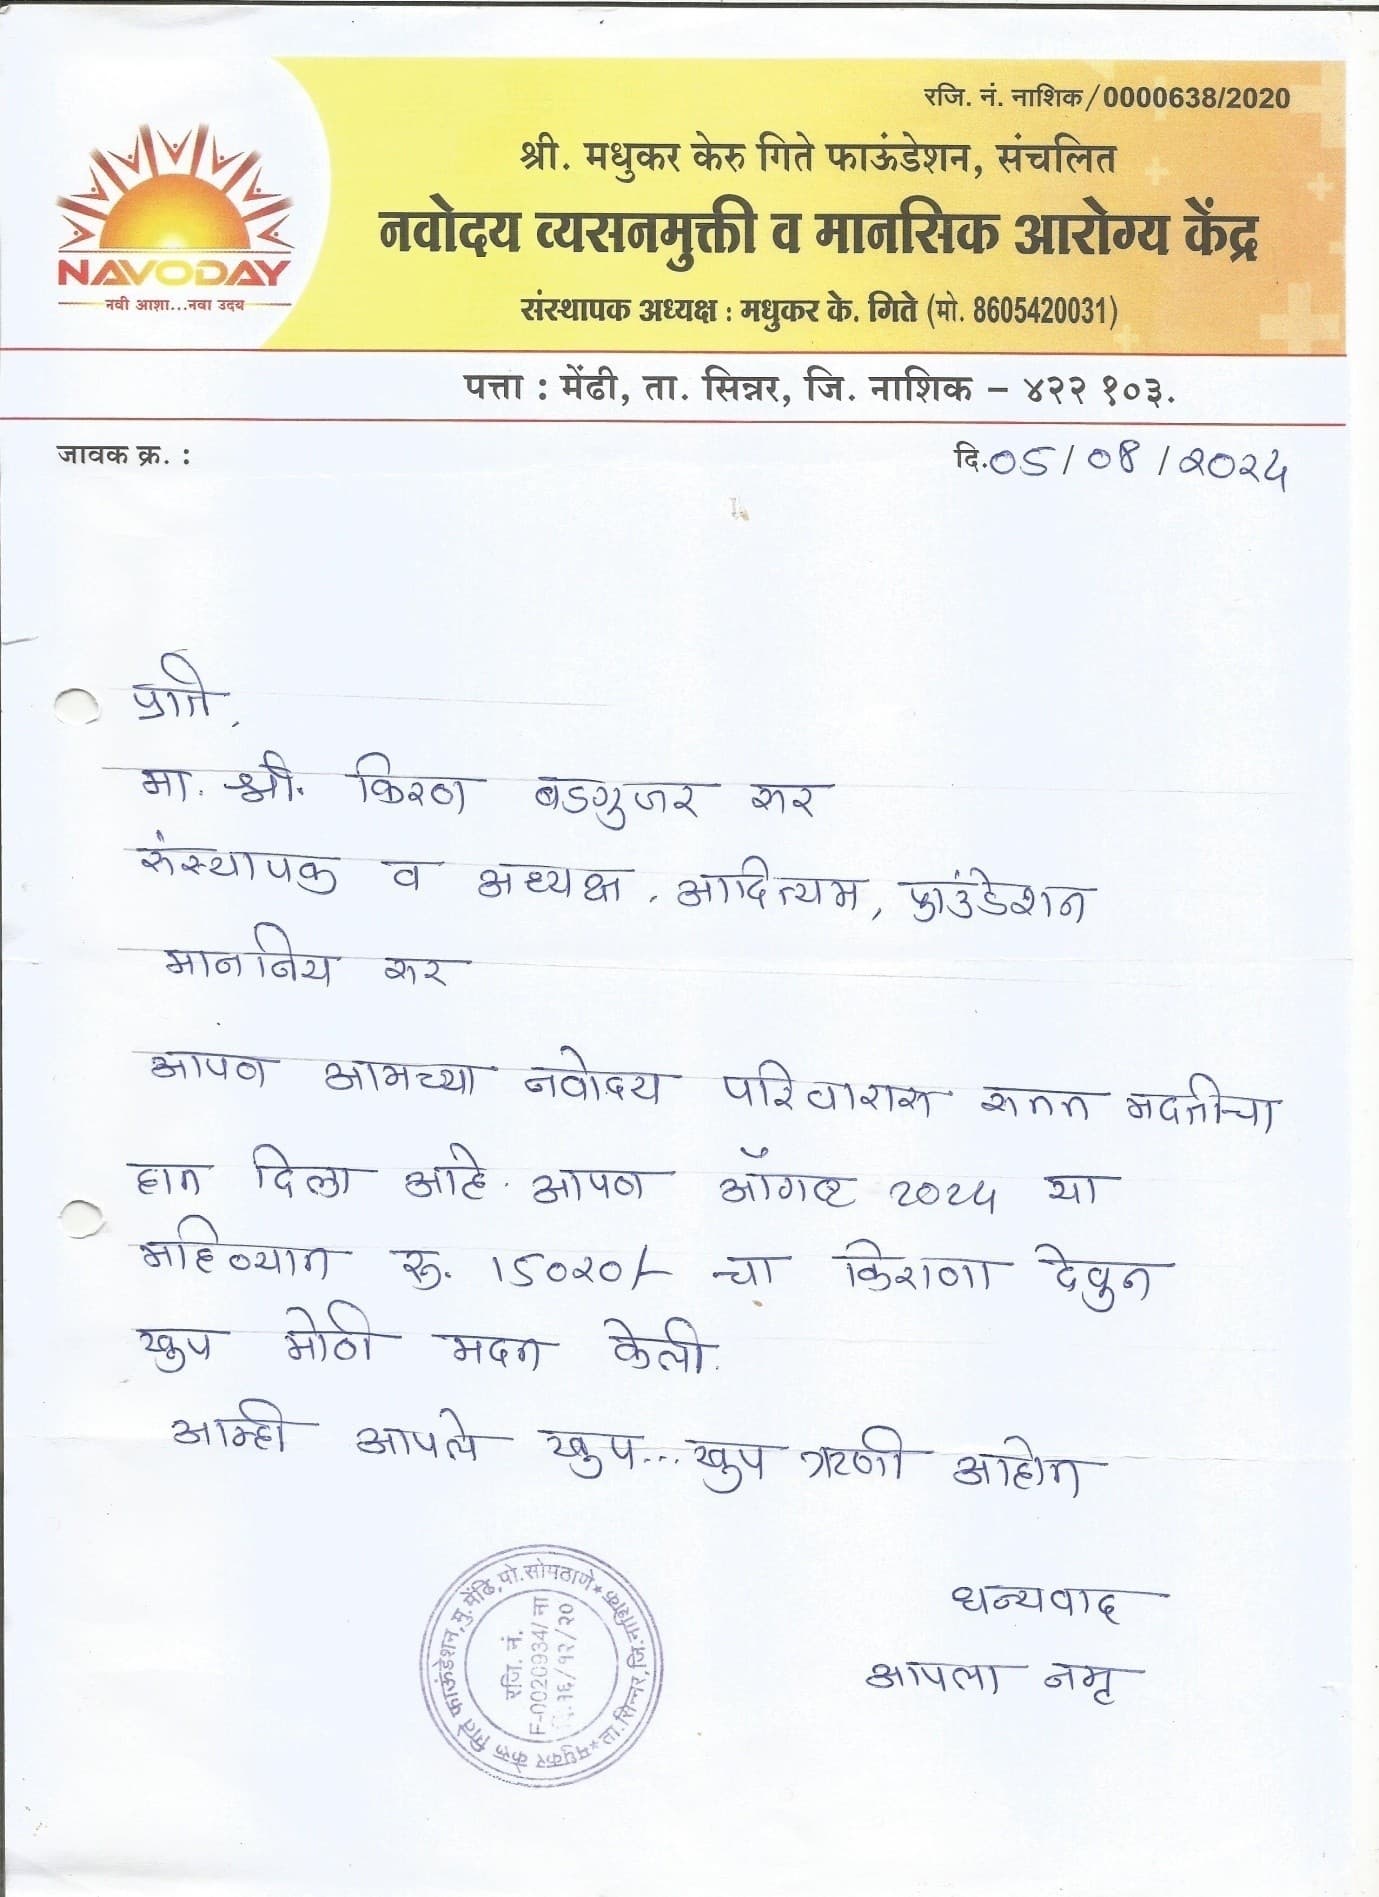 रजि. नं. नाशिक/0000638/2020
श्री. मधुकर केरु गिते फाऊंडेशन, संचलित
नवोदय व्यसनमुक्ती व मानसिक आरोग्य केंद्र
संस्थापक अध्यक्ष : मधुकर के. गिते (मो. 8605420031)
NAVODAY
नवी आशा...नवा उदय
पत्ता : मेंढी, ता. सिन्नर, जि. नाशिक – ४२२ १०३.
जावक क्र. :
दि.०5/०8/२०२५
प्रति,
मा. श्री. किरण बडगुजर सर
संस्थापक व अध्यक्ष, आदित्यम, फाउंडेशन
माननिय सर
आपण आमच्या नवोदय परिवारास सतत मदतीचा
हात दिला आहे. आपण ऑगष्ट २०२५ या
महिन्यात रु. 15०२०/- चा किराणा देवुन
खुप मोठी मदत केली.
आम्ही आपले खुप...खुप ऋणी आहोत
धन्यवाद
आपला नम्र
मधुकर केरु गिते फाऊंडेशन, मु. मेंढि, पो. सोमठाणे * ता. सिन्नर, जि. नाशिक *
रजि. नं.
F-0020934/ना
दि.१६/१२/२०